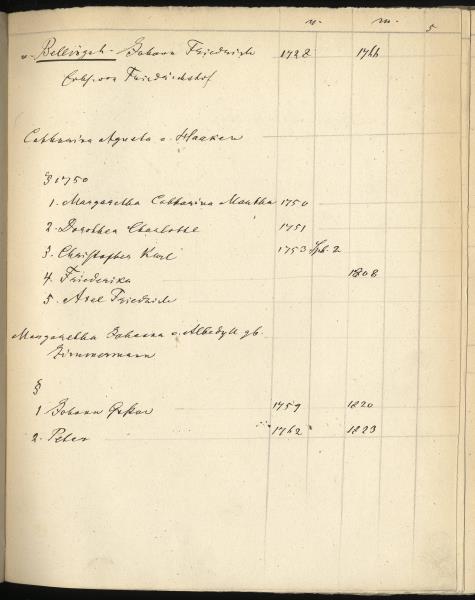 n. m. 5
v. Bellingshausen Johann Friedrich 1728 1766
Erbh. von Friedrichshof
Catharina Agneta v. Haaken
§ 1750
1. Margaretha Catharina Martha 1750
2. Dorothea Charlotte 1751
3. Christopher Karl 1753 Spt. 2
4. Friederika 1808
5. Axel Friedrich
Margaretha Johanna v. Albedyll gb.
Zimmermann
§
1 Johann 1759 1820
2. Peter 1762 1823